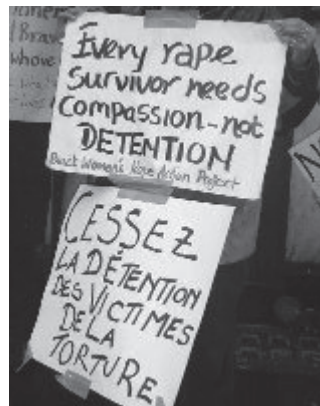 Brav
whove
Every rape
survivor needs
compassion-not
DETENTION
Black Women's Rape Action Project
CESSEZ
LA DÉTENTION
DES VICTIMES
DE LA
TORTURE